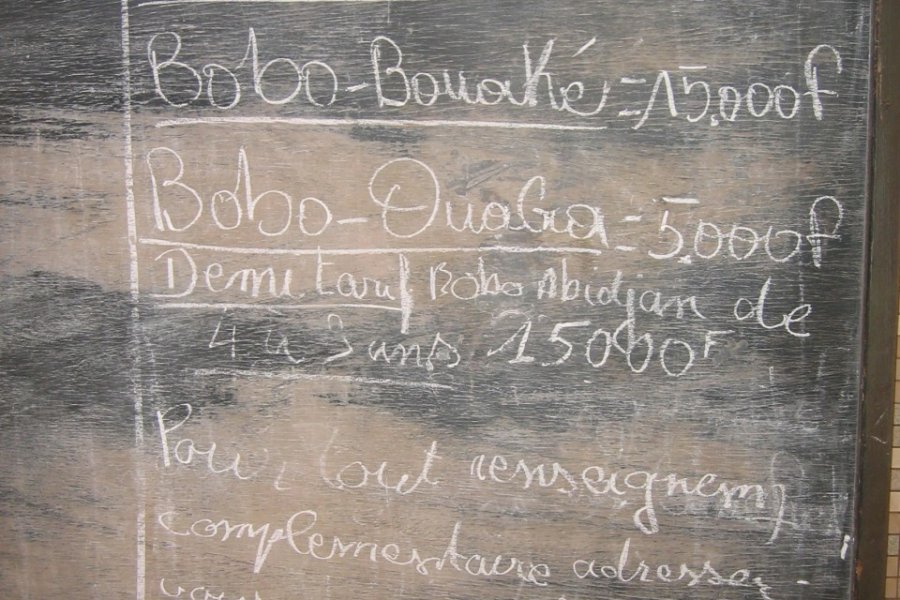 Bobo-Bouaké=15.000f
Bobo-Ouaga-5.000f
Demi tarif Bobo Abidjan de
4 à 8 ans 15000F
Pour tout renseignemt
complementaire adressez-
vous